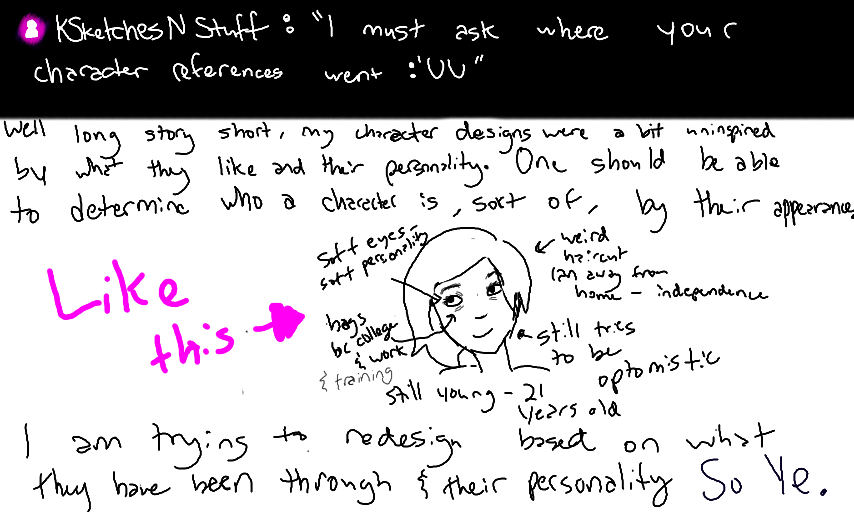 KSketchesNStuff: "I must ask where your
character references went :'UU"
Well long story short, my character designs were a bit uninspired
by what they like and their personality. One should be able
to determine who a character is, sort of, by their appearance.
Like
this
soft eyes -
soft personality
weird
haircut
ran away from
home - independence
bags
bc college
& work
& training
still tries
to be
optomistic
still young - 21
years old
I am trying to redesign based on what
they have been through & their personality So Ye.